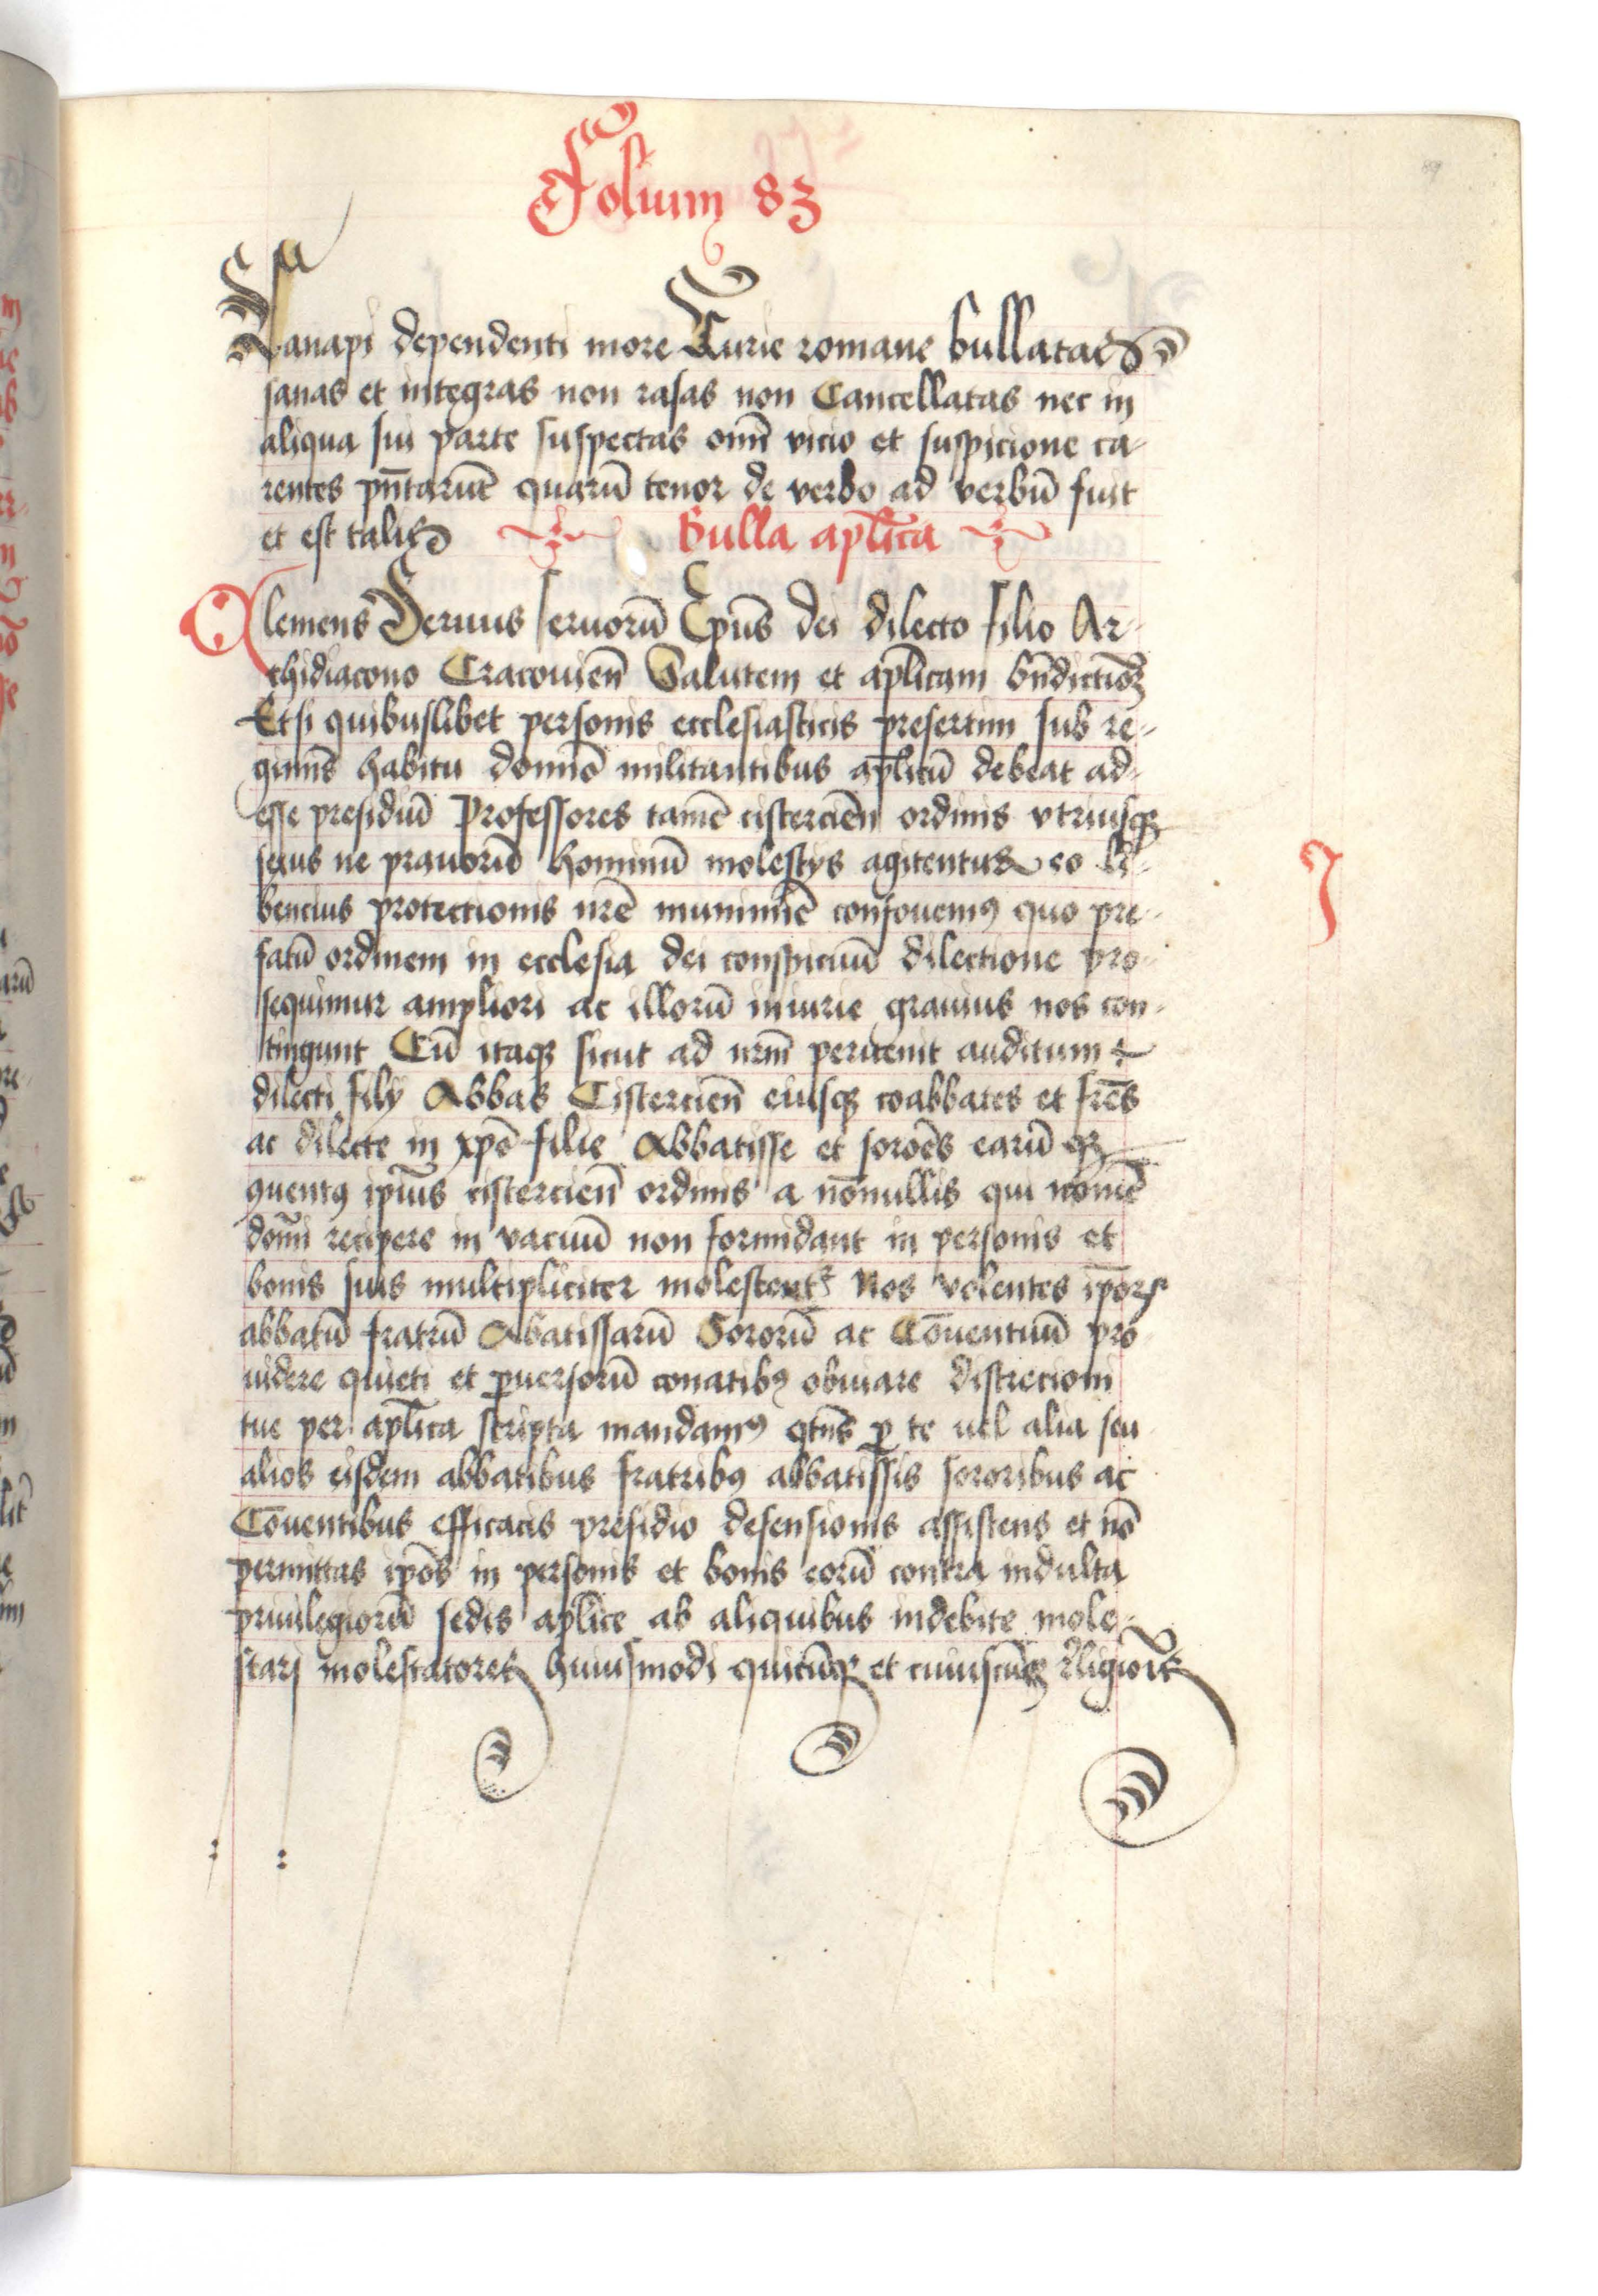 Folium 83
Canapi dependenti more Curie romane bullatas
sanas et integras non rasas non Cancellatas nec in
aliqua sui parte suspectas omī vicio et suspicione ca-
rentes pn̄tarūt quarū tenor de verbo ad verbū fuit
et est talis Bulla aplīca
Clemens Seruus seruorū Epūs dei dilecto filio Ar-
chidiacono Cracouien̄ Salutem et aplīcam bn̄dictioēꝫ
Etsi quibuslibet personis ecclesiasticis presertim sub re-
giminis habitu domīo militantibus aplīcū debeat ad-
esse presidiū Professores tamē cistercien̄ ordinis vtriusqꝫ
sexus ne prauorū hominū molestijs agitentur eo li-
bencius protectionis nr̄e munimīe confouemꝰ quo pre-
fatū ordinem in ecclesia dei conspicuū dilectione pro-
sequimur ampliori ac illorū iniurie grauius nos con-
tingunt Cū itaqꝫ sicut ad nrm̄ peruenit auditum
dilecti filij Abbas Cistercien̄ eiusqꝫ coabbates et frēs
ac dilecte in xpō filie Abbatisse et soroēs earū
ꝯuentꝰ ipīus cistercien̄ ordinis a nōnullis qui nomē
domī recipere in vacuū non formidant in personis et
bonis suis multipliciter molestent᷑ Nos volentes ip̄oꝝ
abbatū fratrū Abatissarū Sororū ac Cōuentuū pro
uidere quieti et ꝑuersorū conatibꝰ obuiare discrecioni
tue per aplīca scripta mandamꝰ qtn̄s ꝑ te uel aliū seu
alios eisdem abbatibus fratribꝰ abbatissis sororibus ac
Cōuentibus efficacis presidio defensionis assistens et nō
permittas ipōs in personis et bonis eorū contra indulta
priuilegiorū sedis aplīce ab aliquibus indebite mole-
stari molestatores huiusmodi quicūqꝫ et cuiuscūqꝫ